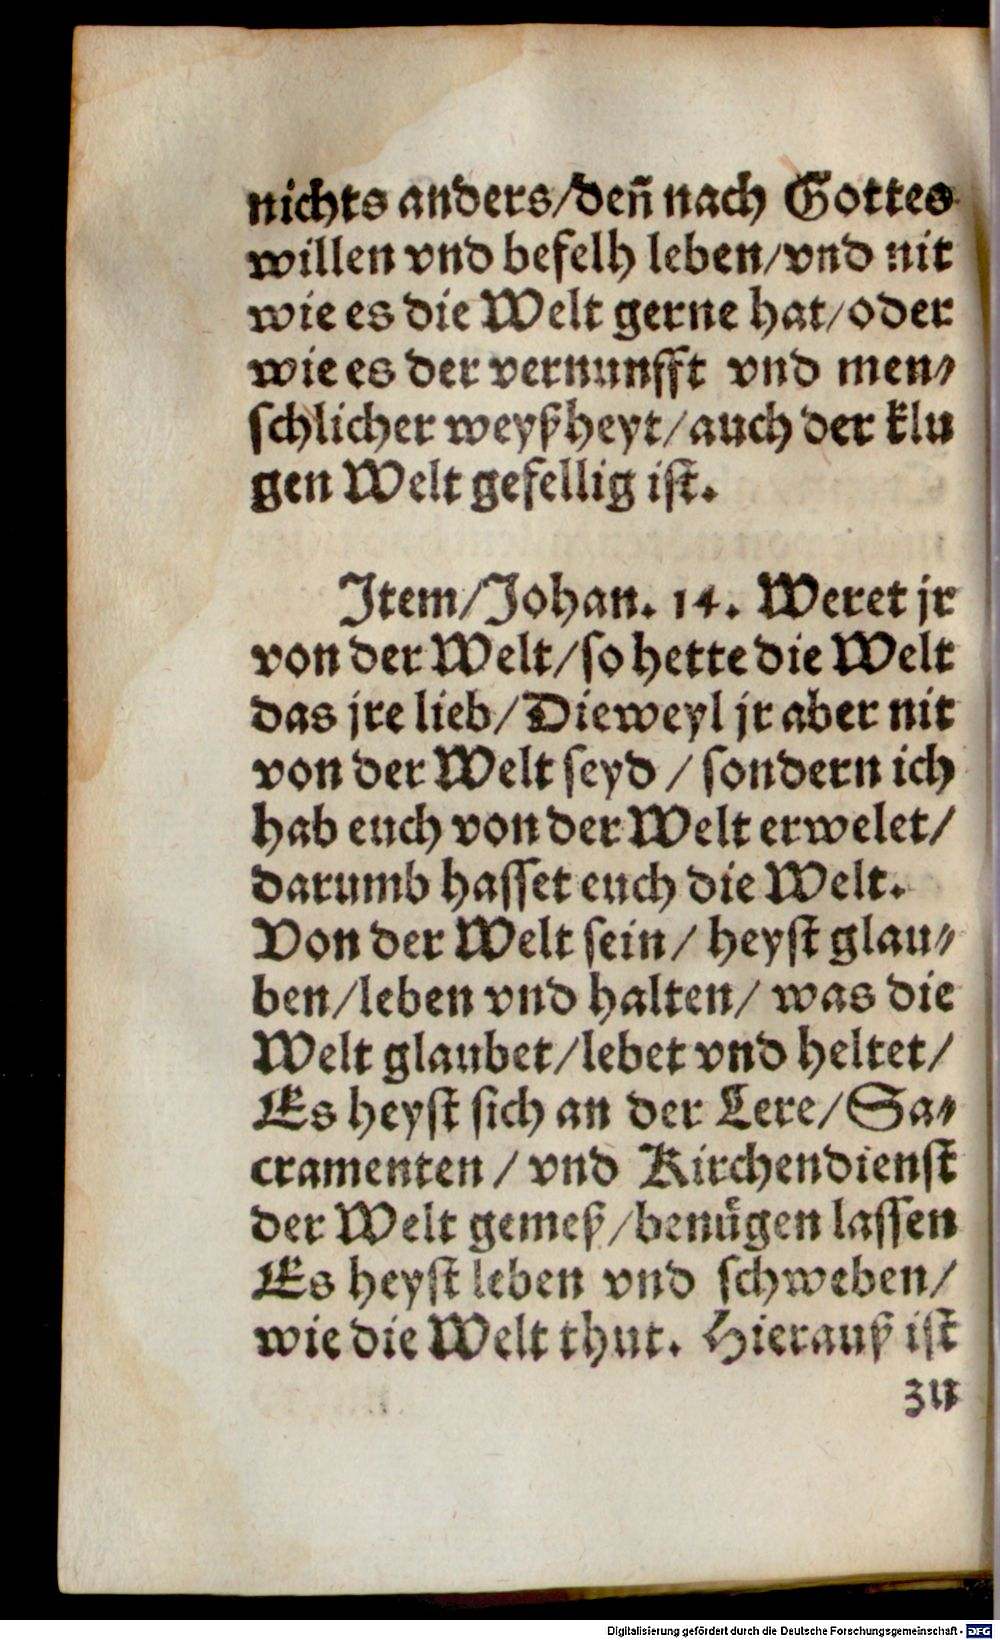 nichts anders/deñ nach Gottes
willen vnd befelh leben/vnd nit
wie es die Welt gerne hat/oder
wie es der vernunfft vnd men-
schlicher weyßheyt/auch der klu
gen Welt gefellig ist.
Item/Johan. 14. Weret jr
von der Welt/so hette die Welt
das jre lieb/Dieweyl jr aber nit
von der Welt seyd / sondern ich
hab euch von der Welt erwelet/
darumb hasset euch die Welt.
Von der Welt sein/ heyst glau-
ben/leben vnd halten/ was die
Welt glaubet/lebet vnd heltet/
Es heyst sich an der Lere/Sa-
cramenten / vnd Kirchendienst
der Welt gemeß/benuͤgen lassen
Es heyst leben vnd schweben/
wie die Welt thut. Hierauß ist
zu
Digitalisierung gefördert durch die Deutsche Forschungsgemeinschaft - DFG